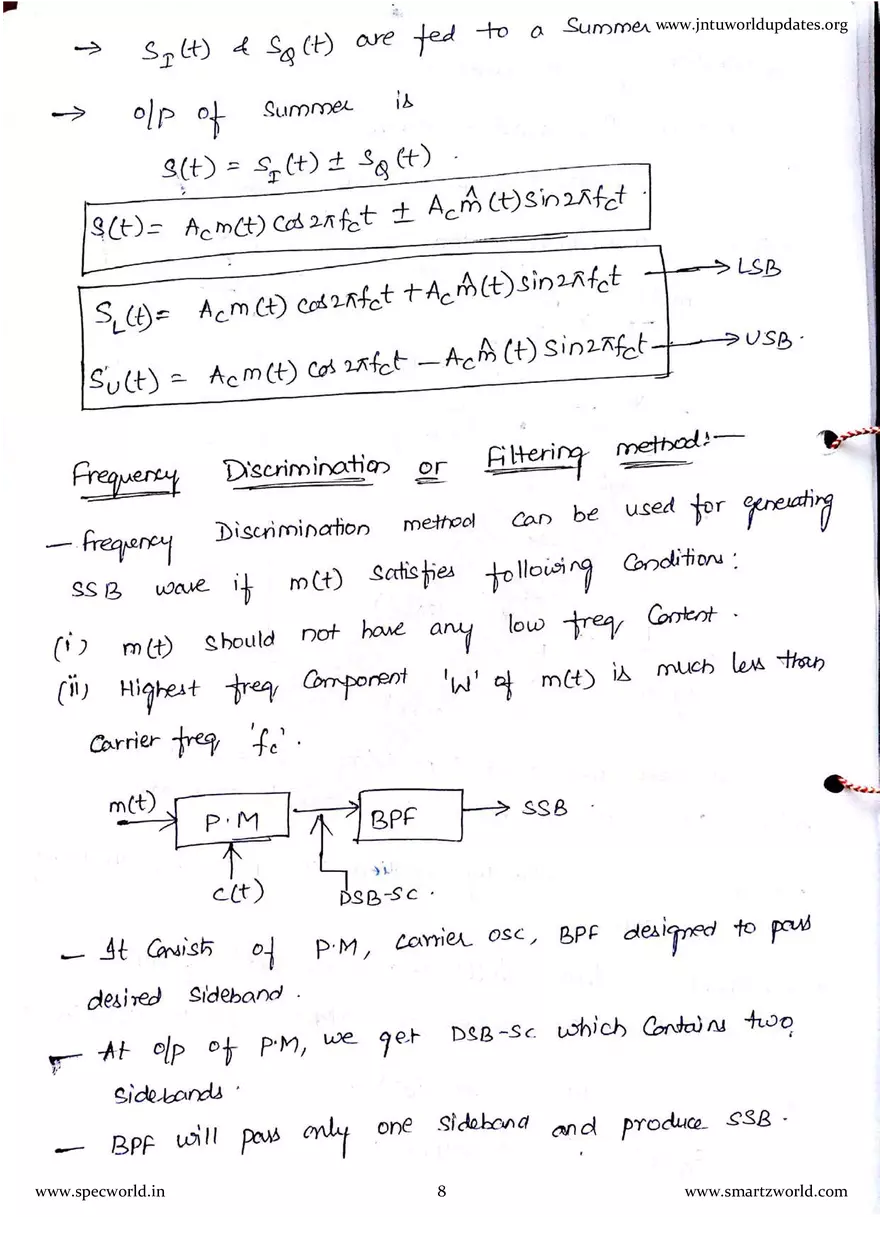 www.jntuworldupdates.org
→ S_I(t) & S_Q(t) are fed to a Summer
→ o/p of Summer is
S(t) = S_I(t) ± S_Q(t) .
S(t) = A_c m(t) Cos 2πf_c t ± A_c m̂(t) Sin 2πf_c t .
S_L(t) = A_c m(t) cos 2πf_c t + A_c m̂(t) sin 2πf_c t → LSB
S_U(t) = A_c m(t) cos 2πf_c t − A_c m̂(t) Sin 2πf_c t → USB .
Frequency Discrimination or Filtering method:—
— frequency Discrimination method can be used for generating
SSB wave if m(t) satisfies following Conditions :
(i) m(t) should not have any low freq Content .
(ii) Highest freq Component 'W' of m(t) is much less than
Carrier freq 'f_c' .
m(t) → P.M → BPF → SSB .
c(t) DSB-SC .
— It Consists of P.M, carrier osc, BPF designed to pass
desired sideband .
— At o/p of P.M, we get DSB-SC which Contains two
sidebands .
— BPF will pass only one sideband and produce SSB .
www.specworld.in 8 www.smartzworld.com